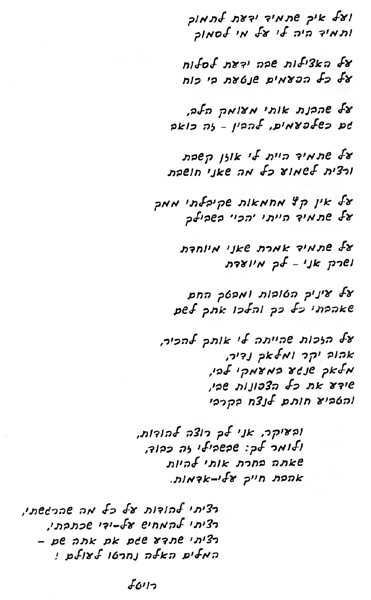 ועל איך שתמיד ידעת לתמוך
ותמיד היה לי על מי לסמוך
על האצילות שבה ידעת לסלוח
על כל הפעמים שנטעת בי כוח
על שהבנת אותי מעומק הלב,
גם כשלפעמים, להבין - זה כואב
על שתמיד היית לי אוזן קשבת
ורצית לשמוע כל מה שאני חושבת
על אין קץ מחמאות שקיבלתי ממך
על שתמיד הייתי "הכי" בשבילך
על שתמיד אמרת שאני מיוחדת
ושרק אני - לך מיועדת
על עיניך הטובות ומבטך החם
שאהבתי כל כך והלכו אתך לשם
על הזכות שהייתה לי אותך להכיר,
אהוב יקר ומלאך נדיר,
מלאך שנגע במעמקי לבי,
שידע את כל הצפונות שבי,
והטביע חותם לנצח בקרבי
ובעיקר, אני לך רוצה להודות,
ולומר לך: שבשבילי זה כבוד,
שאתה בחרת אותי להיות
אהבת חייך עלי-אדמות.
רציתי להודות על כל מה שהרגשתי,
רציתי להמחיש על-ידי שכתבתי,
רציתי שתדע שגם אם אתה שם -
המלים האלה נחרטו לעולם !
רויטל